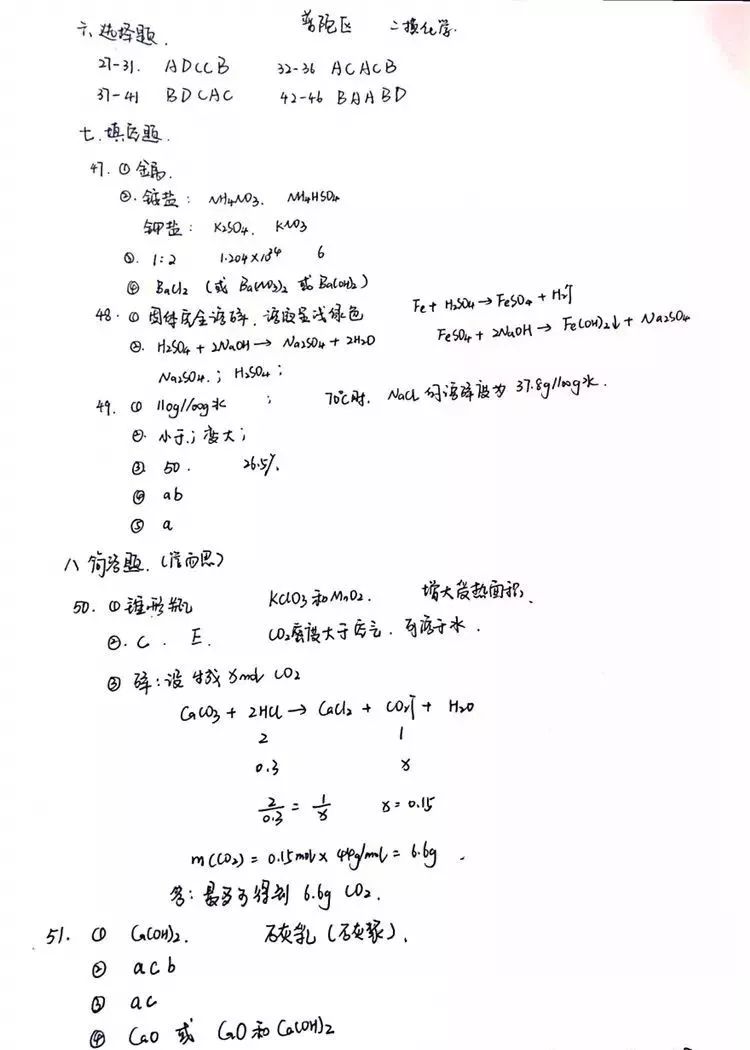 普陀区 二模化学
六、选择题.
27-31. ADCCB 32-36 ACACB
37-41 BDCAC 42-46 BAABD
七. 填空题.
47. ① 金属.
②. 铵盐: NH4NO3. NH4HSO4
钾盐: K2SO4. KNO3
③. 1:2 1.204×10²⁴ 6
④ BaCl2 (或 Ba(NO3)2 或Ba(OH)2)
48. ① 固体完全溶解, 溶液呈浅绿色 Fe + H2SO4 → FeSO4 + H2↑
FeSO4 + 2NaOH → Fe(OH)2↓ + Na2SO4
②. H2SO4 + 2NaOH → Na2SO4 + 2H2O
Na2SO4.; H2SO4;
49. ① 110g/100g水; 70℃时. NaCl的溶解度为 37.8g/100g水.
②. 小于; 变大;
③ 50. 26.5%.
④ ab
⑤ a
八 简答题.
50. ① 锥形瓶 KClO3和MnO2. 增大受热面积.
②. C. E. CO2密度大于空气. 可溶于水.
③ 解: 设生成 x mol CO2
CaCO3 + 2HCl → CaCl2 + CO2↑ + H2O
2 1
0.3 x
2/0.3 = 1/x x = 0.15
m(CO2) = 0.15mol × 44g/mol = 6.6g.
答: 最多可得到 6.6g CO2.
51. ① Ca(OH)2. 石灰乳 (石灰浆).
② acb
③ ac
④ CaO 或 CaO和Ca(OH)2